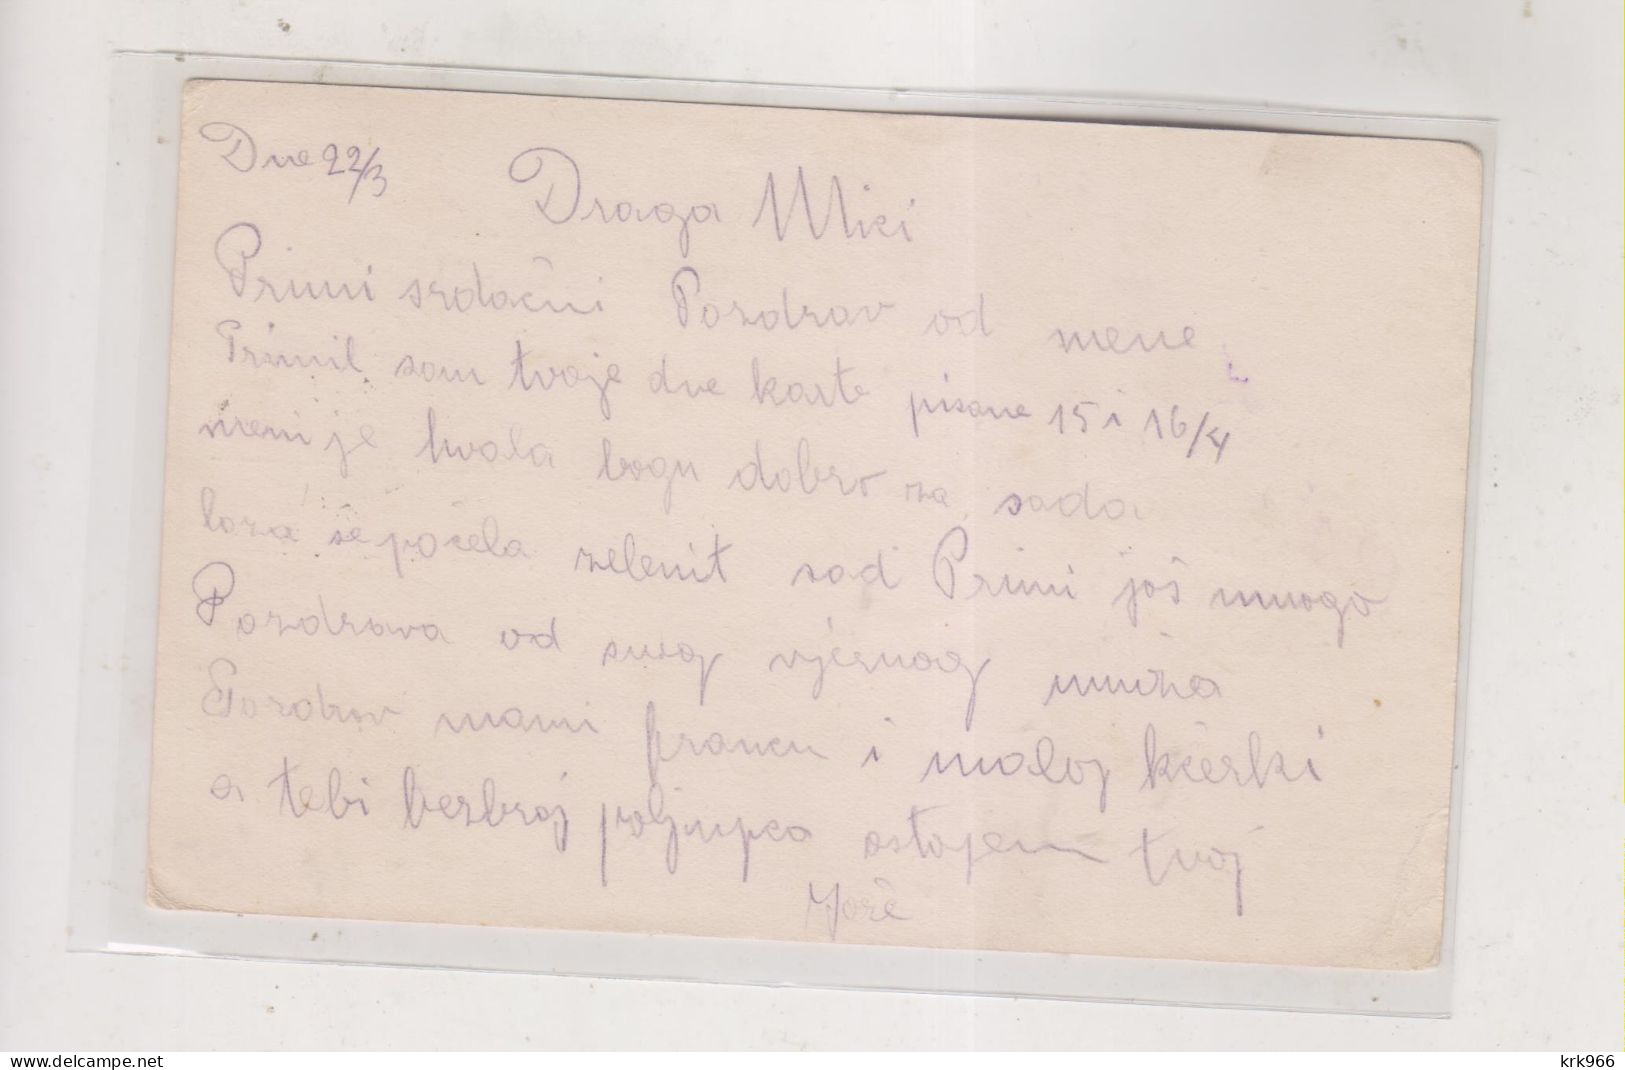 Dne 22/3
Draga Mici
Primi srdačni Pozdrav od mene
Primil sam tvoje dve karte pisane 15 i 16/4
meni je hvala bogu dobro za sada
loza se počela zelenit sad Primi još mnogo
Pozdrava od svog vjernog muža
Pozdrav mami francu i maloj kčerki
a tebi bezbroj poljupca ostajem tvoj
Jože
www.delcampe.net
krk966